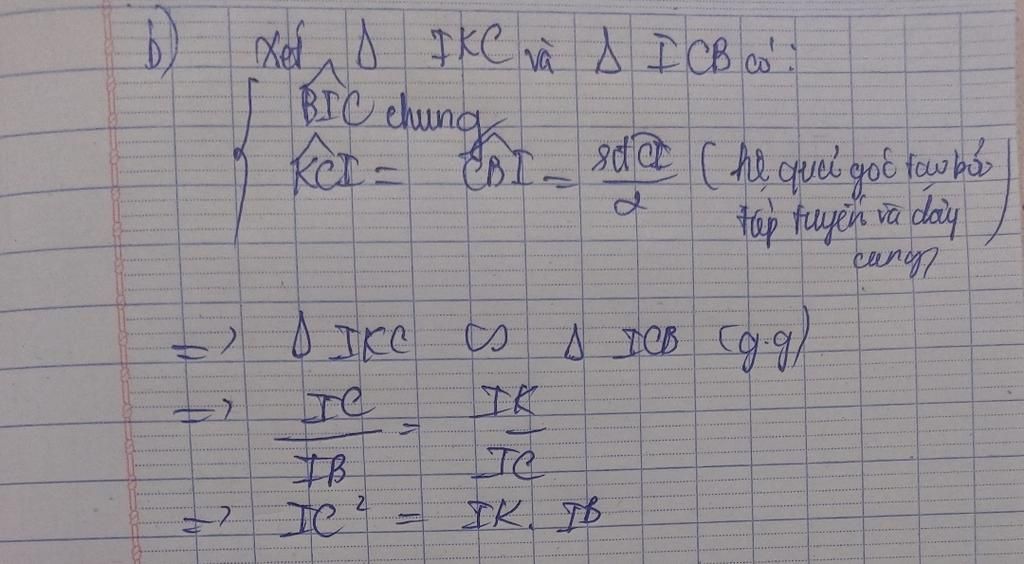 b) Xét Δ IKC và Δ ICB có:
BIC chung
KCI = CBI = sđCI / 2 ( hệ quả góc tạo bởi
tiếp tuyến và dây
cung)
=> Δ IKC ∽ Δ ICB (g.g)
=> IC / IB = IK / IC
=> IC² = IK. IB